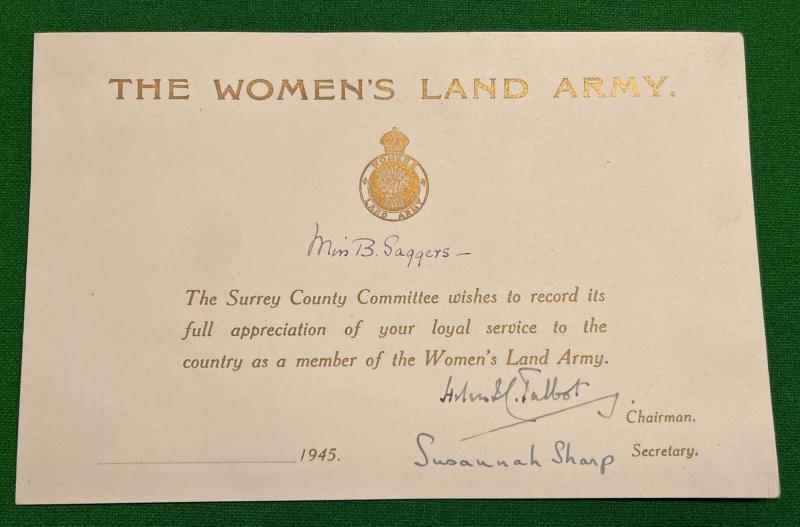 THE WOMEN'S LAND ARMY.
WOMEN'S
LAND ARMY
Miss B. Saggers –
The Surrey County Committee wishes to record its
full appreciation of your loyal service to the
country as a member of the Women's Land Army.
Talbot
Chairman.
Susannah Sharp Secretary.
1945.